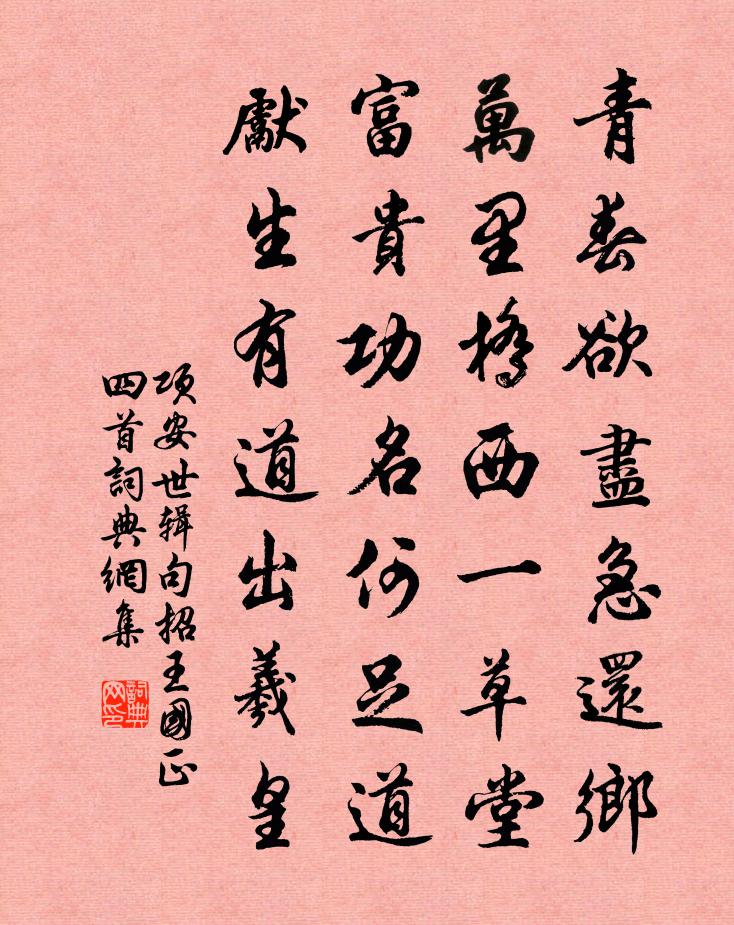 青春欲盡急還鄉
萬里橋西一草堂
富貴功名何足道
獻生有道出羲皇
項安世辑句招王國正
四首詞典網集
詞典
网印